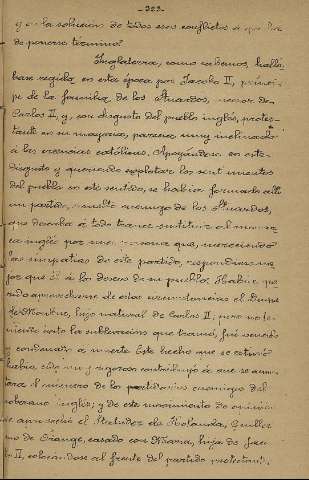 - 323 -
y a la solución de todos esos conflictos a que iba
de ponerse término?
Inglaterra, como sabemos, hallá-
base regida en esta época por Jacobo II, prínci-
pe de la familia de los Stuardos, sucesor de
Carlos II, y, con disgusto del pueblo inglés, protes-
tante en su mayoría, parecía muy inclinado
á las creencias católicas. Apoyándose en este
disgusto y queriendo explotar los sentimientos
del pueblo en este sentido, se había formado allí
un partido, enemigo de los Stuardos,
que deseaba á todo trance sustituir al monar-
ca inglés por una persona que, mereciendo
las simpatías de este partido, respondiese me-
jor que él á los deseos de su pueblo. Había que-
rido aprovecharse de estas circunstancias el Duque
de Monmouth, hijo natural de Carlos II; pero no te-
niendo éxito la sublevación que tramó, fué vencido
y condenado a muerte. Este hecho que se estimó
había sido muy riguroso contribuyó á que se aumen-
tara el número de los partidarios enemigos del
soberano inglés; y de este movimiento de opinión
se aprovechó el Statuder de Holanda, Guiller-
mo de Orange, casado con María, hija de Jaco-
bo II, colocándose al frente del partido protestante.